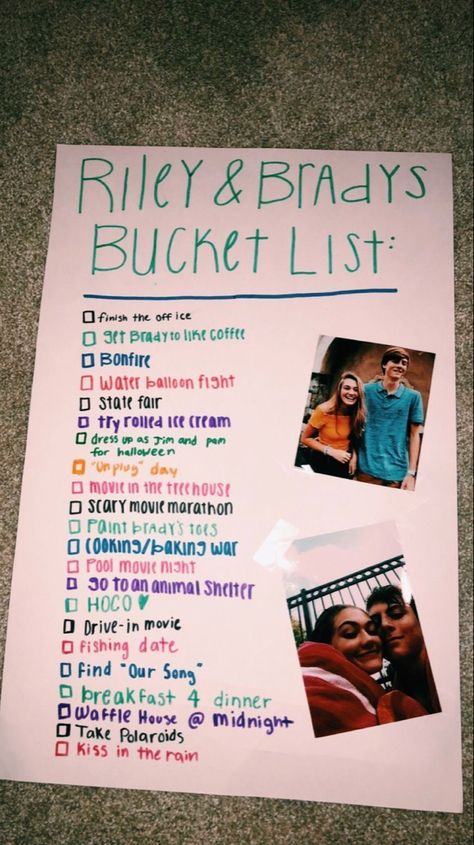 RILEY & BRADYS
BUCKET LIST:
finish the office
get Brady to like coffee
Bonfire
Water balloon fight
State fair
try rolled ice cream
dress up as Jim and pam
for halloween
"Unplug" day
movie in the treehouse
Scary movie marathon
Paint brady's toes
Cooking/baking war
Pool movie night
go to an animal shelter
HOCO ♥
Drive-in movie
fishing date
find "Our Song"
breakfast 4 dinner
Waffle House @ midnight
Take Polaroids
Kiss in the rain